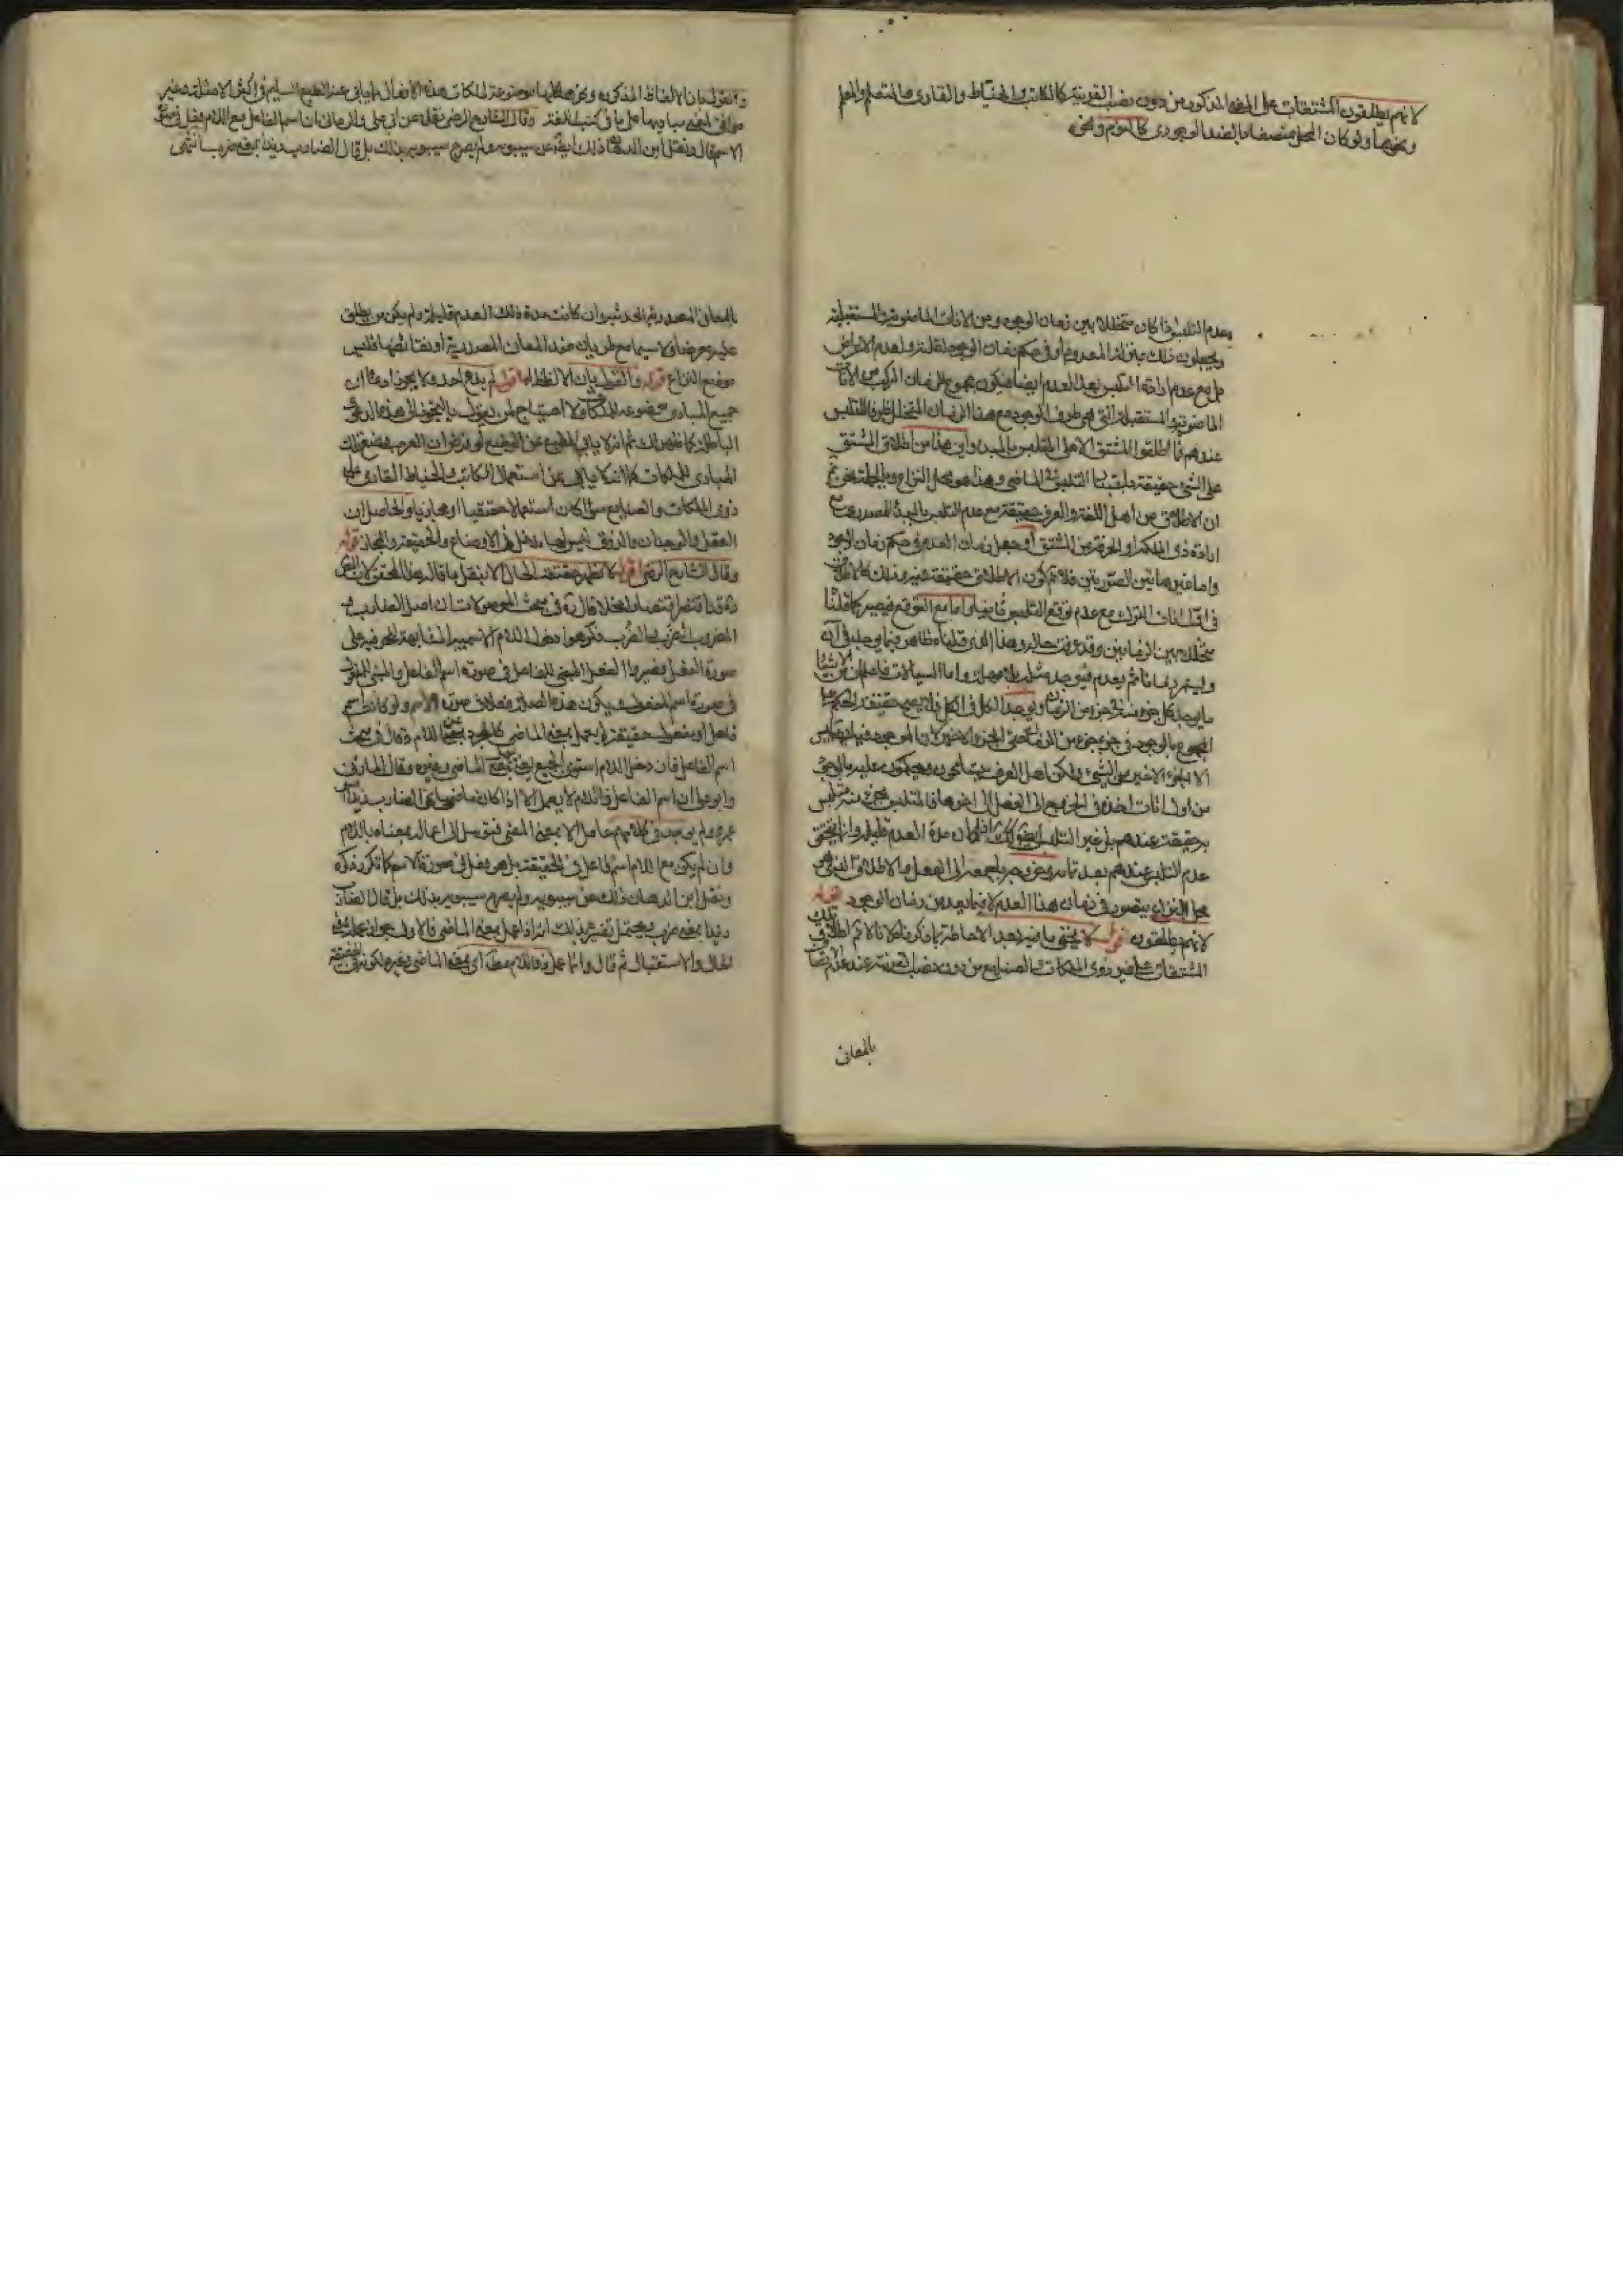 لانهم يطلقون المشتقات على المعنى المذكور من دون نصب القرينة كالكاتب والخياط والقارى والمتعلم والمعلم
ونحوها ولو كان المحل متصفا بالضد الوجودى كالنوم ونحوه
وعدم التلبس اذا كان متخللا بين زمان الوجود ومن الانات الماضوية والمستقبلية
ويجعلون ذلك بمنزلة المعدوم او فى حكم زمان الوجود لقلته ولعدم الاعراض
بل مع عدم ارادة التلبس بعد العدم ايضا فيكون مجموع الزمان المركب من الآنات
الماضوية والمستقبلة التى هى ظرف الوجود مع هذا الزمان المتخلل ظرفا للتلبس
عندهم فما اطلقوا المشتق الا على المتلبس بالمبدء واين هذا من اطلاق المشتق
على الشئ حقيقة باعتبار التلبس فى الماضى وهذا هو محل النزاع وبالجملة نحن
ان الاطلاق من اهل اللغة والعرف حقيقة مع عدم التلبس بالمبدء المصدرى مع
ارادة ذو الملكة او الحرفة من المشتق او جعل زمان العدم فى حكم زمان الوجود
واما غير هاتين الصورتين فلا نم كون الاطلاق حقيقة
فى اقل انات الترك مع عدم توقع التلبس ثانيا واما مع التوقع فيصير كما قلنا
متخللا بين الزمانين وقد عرفت حاله وهذا الذى قلناه ظاهر فيما وجد فى آن
ويستمر زمانا ثم يعدم واما السيالات فاعلم ان من الاشيا
ما يوجد كل جزء منه فى جزء من الزمان ويوجد الكل فى الكل فلا يصح حقيقة الحكم على
المجموع بالوجود فى جزء جزء من الزمان حتى الجزء الاخير لان الموجود فيه ليس
الا الجزء الاخير من الشئ ولكن اهل العرف يتسامحون ويحكمون عليه بالوجود
من اول انات اخذه فى الخروج الى الفعل الى اخرها فالمتلبس بجزء منه متلبس
به حقيقة عندهم بل غير المتلبس ايضا كذلك اذا كان مدة العدم قليلة وانما يتحقق
عدم التلبس عندهم بعد تمامه وخروجه باجمعه الى الفعل والاطلاق الذى هو
محل النزاع يتصور فى زمان هذا العدم لا فيما بعد من زمان الوجود قوله
لانهم يطلقون اقول لا يخفى ما فيه بعد الاحاطة بما ذكرناه لانا لا نم اطلاق تلك
المشتقات على غير ذوى الملكات والصنايع من دون نصب قرينة عند عدم اتصا
بالمعانى
والقول بان الالفاظ المذكورة ونحوها كلها موضوعة لملكات هذه الافعال مما يابى عنه الطبع السليم فى اكثر الامثلة وغير
موافق لمعنى مباديها على ما فى كتب اللغة وقال الشارح الرضى نقلا عن ابى على والرمانى ان اسم الفاعل مع اللام
الاسم قال ونقل ابن الدهان ذلك ايضا عن سيبويه ولم يصرح سيبويه بذلك بل قال الضارب زيدا بمعنى ضرب انتهى
بالمعانى المصدرية الحدثية وان كانت مدة ذلك العدم قليلة ولم يكن من يطلق
عليه معرضا ولا سيما مع طريان ضد المعانى المصدرية او نقائضها فليس
موضع النزاع قوله والقول بان الالفاظ اه اقول لم يدع احد ولا يجوز ادعا ان
جميع المبادى موضوعة للملكات ولا احتياج لمن يقول بالتجوز الى هذه الدعوى
الباطلة كما ظهر لك ثم انه لا يابى الطبع عن الوضع لو فرض ان العرب وضع تلك
المبادى للملكات كما انه لا يابى عن استعمال الكاتب والخياط القارى على
ذوى الملكات والصنايع سوآ كان استعمالا حقيقيا او مجازيا والحاصل ان
العقل والوجدان والذوق ليس لها مدخل فى الاوضاع والحقيقة والمجاز قوله
وقال الشارح الرضى اقول لا تظهر حقيقة الحال الا بنقل ما قاله هذا المحقق لان المص
ره قد اقتصر اقتصارا مخلا قال ره فى مبحث الموصولات ان اصل الضارب و
المضروب الضَرَب والضُرِب فكرهوا دخول اللام الاسمية المشابهة للحرفية على
صورة الفعل فصيروا الفعل المبنى للفاعل فى صورة اسم الفاعل والمبنى للمفعول
فى صورة اسم المفعول ويكون هذه الصلة فعلا فى صورة الاسم ولو كانت اسم
فاعل او مفعول حقيقة لم يعمل بمعنى الماضى كالمجرد عن اللام وقال فى مبحث
اسم الفاعل فان دخل اللام استوى الجميع يعنى بمعنى الماضى وغيره وقال المازنى
وابو على ان اسم الفاعل ذا اللام لا يعمل الا اذا كان ماضيا نحو الضارب زيدا امس
عمرو ولم يوجد فى كلامهم عاملا الا بمعنى المضى فتوسل الى اعماله بمعناه باللام
وان لم يكن مع اللام اسم فاعل فى الحقيقة بل هو فعل فى صورة الاسم كما تكرر ذكره
ونقل ابن الدهان ذلك عن سيبويه ولم يصرح سيبويه بذلك بل قال الضارب
زيدا بمعنى ضرب ويحتمل تفسيره بذلك انه اذا عمل بمعنى الماضى فالاولى جواز عمله بمعنى
الحال والاستقبال ثم قال وانما عمل ذو اللام مطلقا اى بمعنى الماضى وغيره لكونه فى الحقيقة